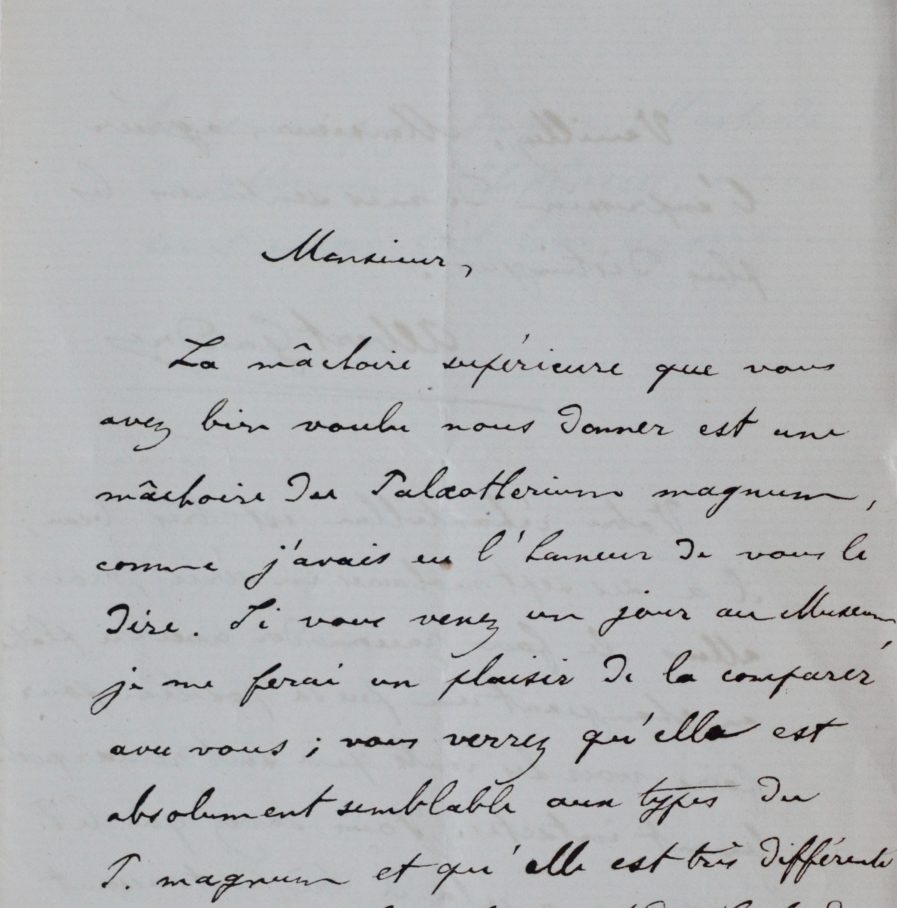 Monsieur,
La mâchoire supérieure que vous
avez bien voulu nous donner est une
mâchoire du Palæotherium magnum,
comme j'avais eu l'honneur de vous le
dire. Si vous venez un jour au Museum
je me ferai un plaisir de la comparer
avec vous ; vous verrez qu'elle est
absolument semblable aux types du
P. magnum et qu'elle est très différente